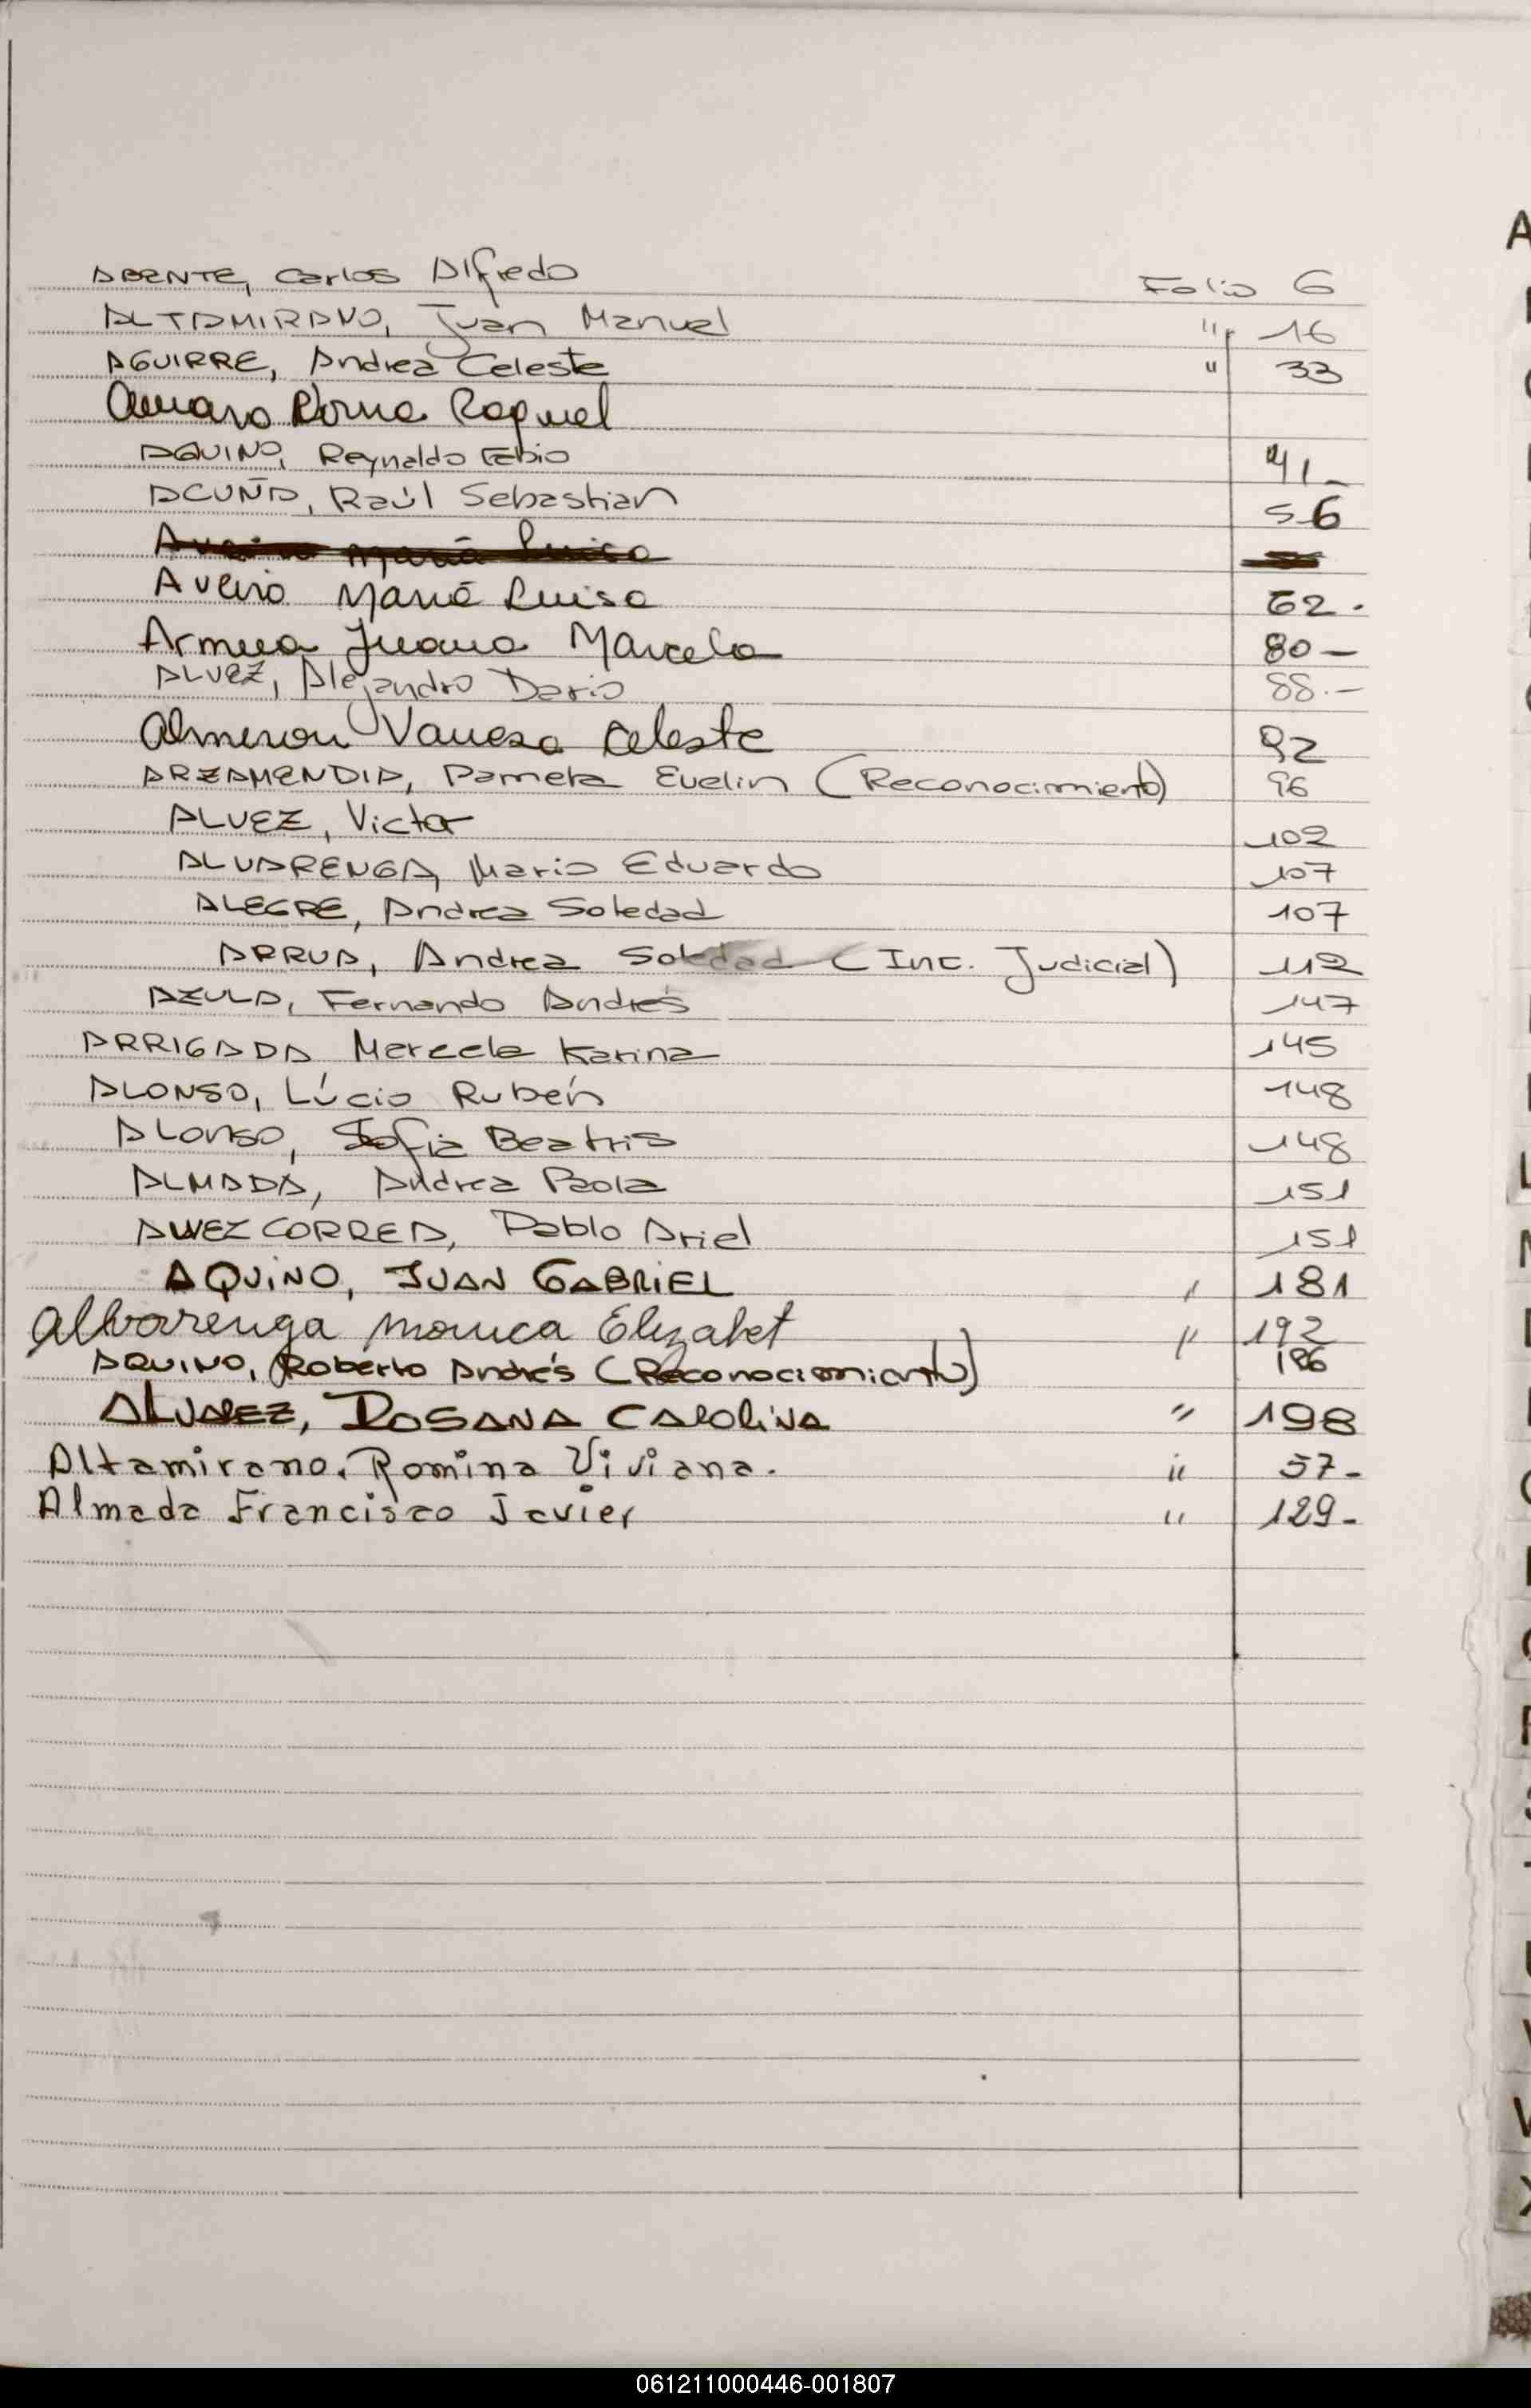 ABENTE, Carlos Alfredo Folio 6
ALTAMIRANO, Juan Manuel " 16
AGUIRRE, Andrea Celeste " 33
Amaro Norma Raquel
AQUINO, Reynaldo Fabio 41
ACUÑA, Raúl Sebastian 56
Aveiro María Luisa
Aveiro María Luisa 62.
Armua Juana Marcela 80 -
ALVEZ, Alejandro Dario 88.-
Almeron Vanesa Celeste 92
ARZAMENDIA, Pamela Evelin (Reconocimiento) 96
ALVEZ, Victor 102
ALVARENGA, Mario Eduardo 107
ALEGRE, Andrea Soledad 107
ARRUA, Andrea Soledad (Inc. Judicial) 112
AZULA, Fernando Andrés 147
ARRIGADA Marcela Karina 145
ALONSO, Lúcio Rubén 148
ALONSO, Sofia Beatris 148
ALMADA, Andrea Paola 151
ALVEZ CORREA, Pablo Ariel 151
AQUINO, JUAN GABRIEL " 181
Albarenga Monica Elizabet " 192
AQUINO, Roberto Andrés (Reconocimiento) 186
ALVAREZ, ROSANA CAROLINA " 198
Altamirano. Romina Viviana. " 57-
Almada Francisco Javier " 129-
A
L
M
V
061211000446-001807